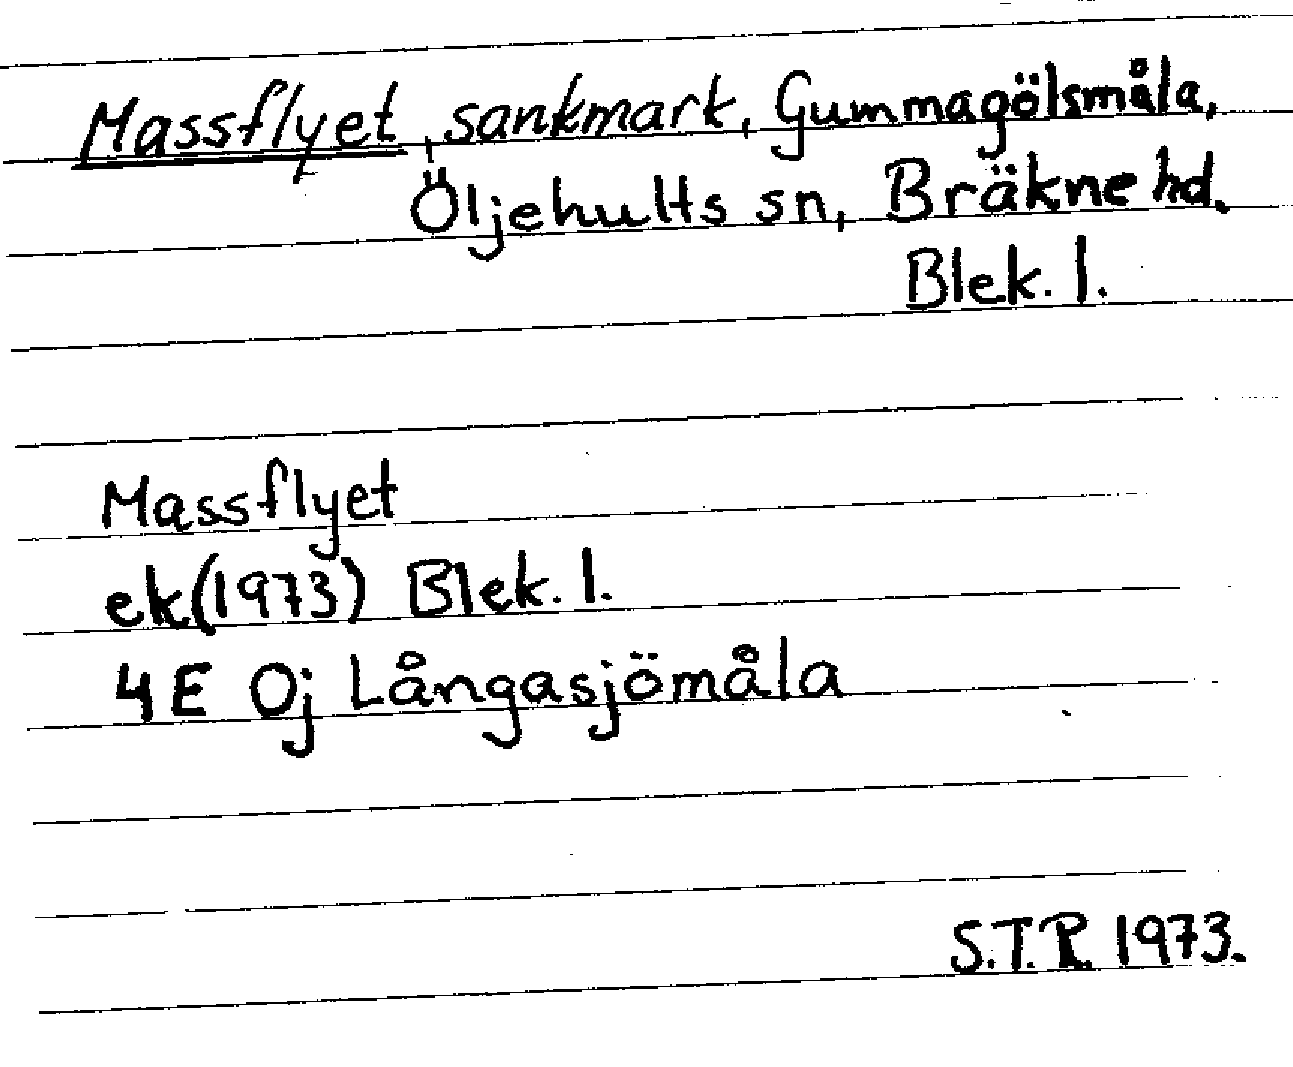 Massflyet, sankmark, Gummagölsmåla,
Öljehults sn, Bräkne hd.
Blek. l.
Massflyet
ek(1973) Blek. l.
4E Oj Långasjömåla
S.T.R. 1973.